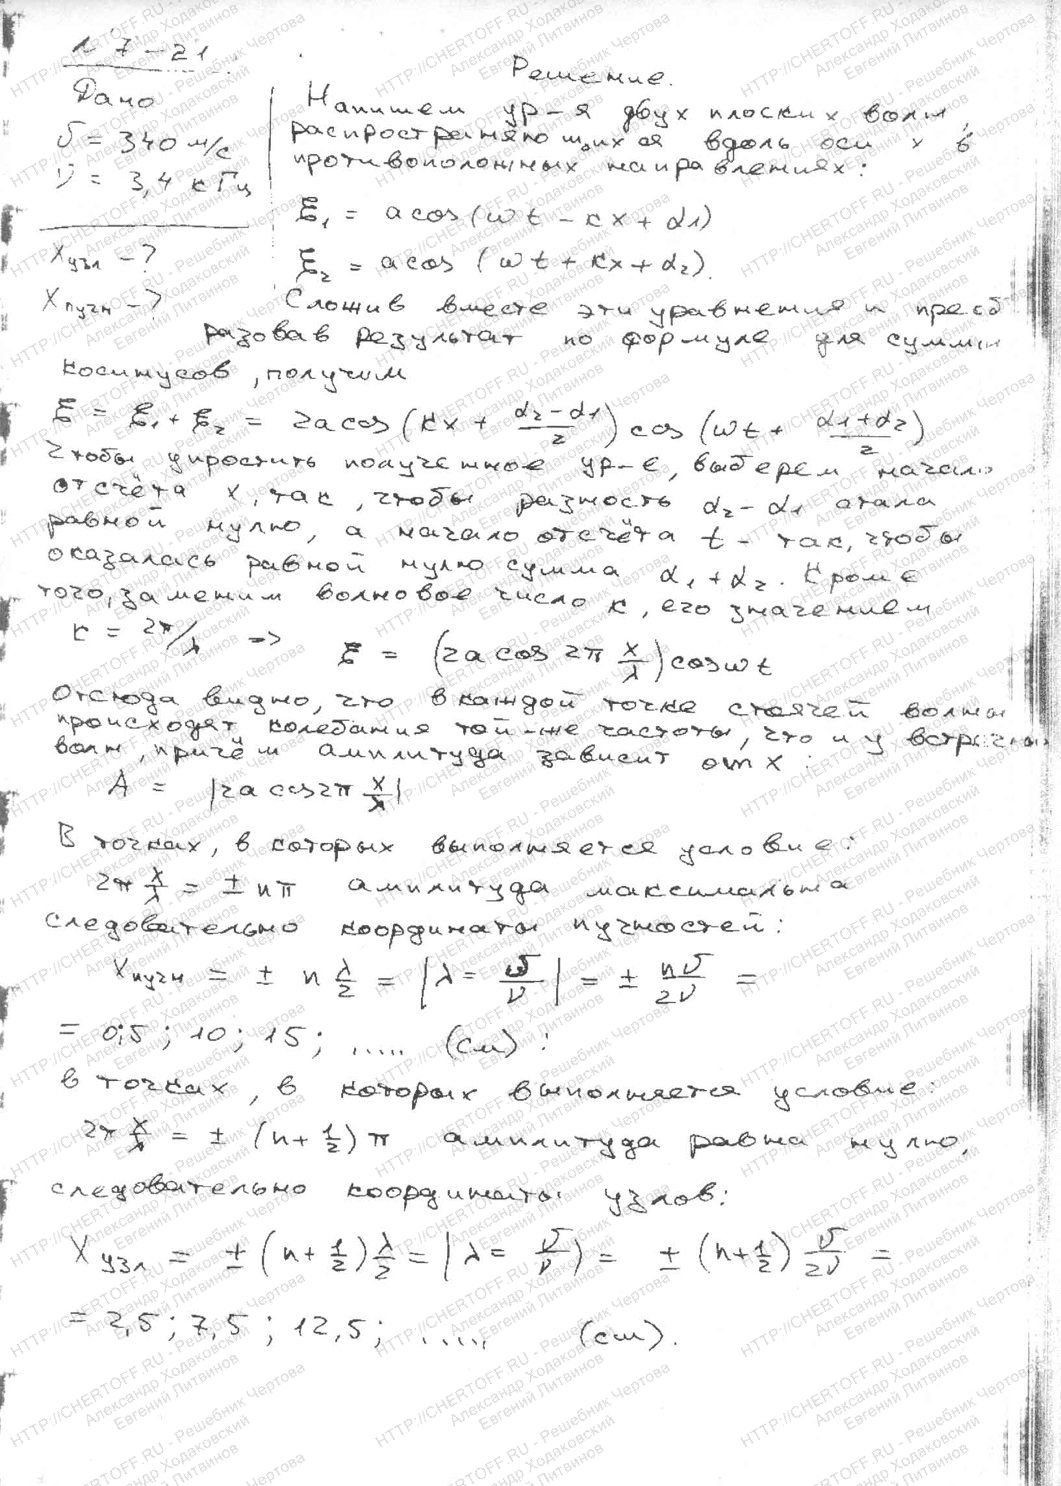 № 7-21
Решение.
Дано
υ = 340 м/с
ν = 3,4 кГц
x узл - ?
x пучн - ?
Напишем ур-я двух плоских волн,
распространяющихся вдоль оси x в
противоположных направлениях:
ξ₁ = a cos(ωt - kx + α₁)
ξ₂ = a cos (ωt + kx + α₂).
Сложив вместе эти уравнения и преоб
разовав результат по формуле для суммы
косинусов, получим
ξ = ξ₁ + ξ₂ = 2a cos (kx + (α₂ - α₁)/2) cos (ωt + (α₁ + α₂)/2)
Чтобы упростить полученное ур-е, выберем начало
отсчёта x, так, чтобы разность α₂ - α₁ стала
равной нулю, а начало отсчёта t - так, чтобы
оказалась равной нулю сумма α₁ + α₂. Кроме
того, заменим волновое число k, его значением
k = 2π/λ => ξ = (2a cos 2π x/λ) cos ωt
Отсюда видно, что в каждой точке стоячей волны
происходят колебания той-же частоты, что и у встречных
волн, причём амплитуда зависит от x :
A = |2a cos 2π x/λ|
В точках, в которых выполняется условие:
2π x/λ = ± nπ амплитуда максимальна
следовательно координаты пучностей:
x пучн = ± n λ/2 = |λ = υ/ν| = ± nυ/2ν =
= 0;5 ; 10 ; 15 ; ..... (см) :
в точках, в которых выполняется условие:
2π x/λ = ± (n + 1/2) π амплитуда равна нулю,
следовательно координаты узлов:
x узл = ± (n + 1/2) λ/2 = |λ = υ/ν) = ± (n + 1/2) υ/2ν =
= 2,5 ; 7,5 ; 12,5 ; ..... (см).
HTTP://CHERTOFF.RU - Решебник Чертова
Александр Ходаковский
Евгений Литвинов